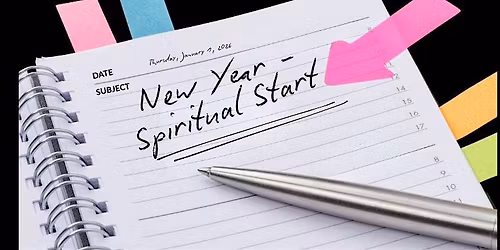 DATE Thursday, January 1, 2026
SUBJECT New Year -
Spiritual Start
14
15
16
17
8
9
10